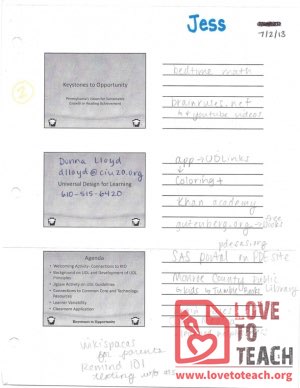 Jess
7/2/13
2
Keystones to Opportunity
bedtime math
brainrules.net
↳ youtube videos
Donna Lloyd
dlloyd@ciu20.org
Universal Design for Learning
610-515-6420
app → UDLinks
Coloring+
Khan academy
gutenberg.org
SAS portal on PDE site
Monroe County Public Library
Agenda
• Welcoming Activity- Connections to RtII
• Background on UDL and Development of UDL Principles
• Jigsaw Activity on UDL Guidelines
• Connections to Common Core and Technology Resources
• Learner Variability
• Classroom Application
Keystones to Opportunity
wikispaces
for parents
Remind 101
texting
LOVE
TO
TEACH
www.lovetoteach.org